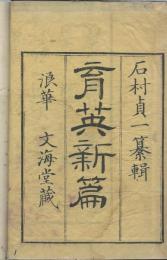 石村貞一纂輯
育英新篇
浪華 文海堂藏